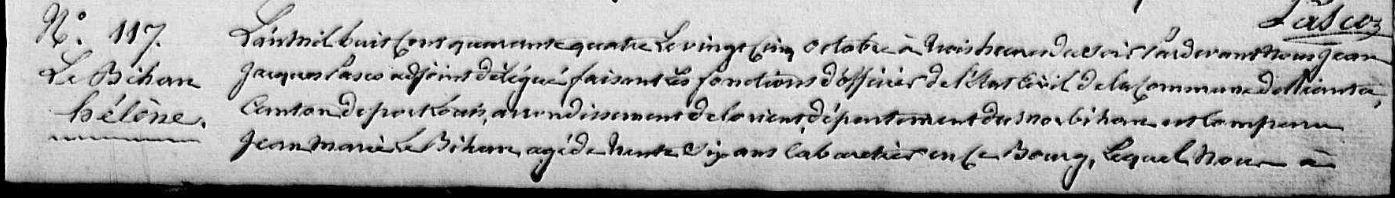 Pasco
N.º 117.
Le Bihan
hélène.
L'an mil huit Cent quarante quatre le vingt Cinq octobre à trois heures du soir Pardevant Nous Jean
Jacques Pasco adjoint délégué faisant les fonctions d'officier de l'état Civil de la Commune de Riantec,
Canton de port louis, arrondissement de lorient, département du morbihan est Comparu
Jean Marie Le Bihan agé de trente Six ans Cabaretier en Ce Bourg, lequel Nous a